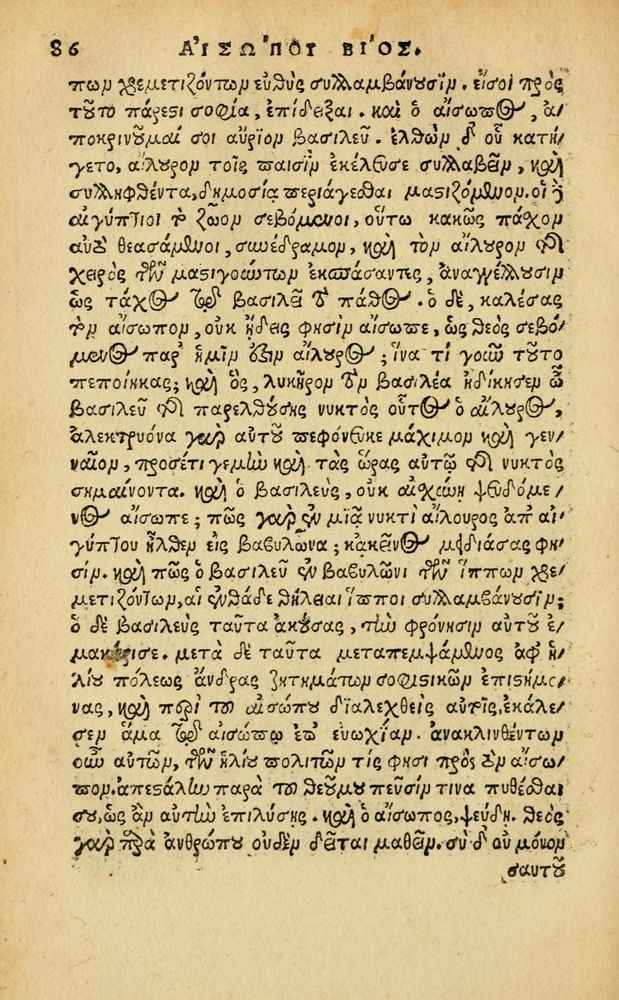 86 ΑἸΣΩΠΟΥ ΒΙΌΣ.
πων χρεμετιζόντων εὐθὺς συλλαμβάνουσιν. εἴσοι πρὸς
τοῦτο πάρεστι σοφία, ἐπίδειξαι. καὶ ὁ αἴσωπος, ἀ/
ποκρινοῦμαί σοι αὔριον βασιλεῦ. ἐλθὼν δ' οὗ κατή/
γετο, αἴλουρον τοῖς παισὶν ἐκέλευσε συλλαβεῖν, καὶ
συλληφθέντα, δημοσία περιάγεσθαι μαστιζόμενον. οἱ δὲ
αἰγύπτιοι τὸ ζῶον σεβόμενοι, οὕτω κακῶς πάσχον
αὐτὸ θεασάμενοι, συνέδραμον, καὶ τὸν αἴλουρον τῆς
χειρὸς τῶν μαστιγούντων ἐκσπάσαντες, ἀναγγέλλουσιν
ὡς τάχος τῷ βασιλεῖ τὸ πάθος. ὁ δὲ, καλέσας
τὸν αἴσωπον, οὐκ ᾔδεις φησὶν αἴσωπε, ὡς θεὸς σεβό/
μενος παρ' ἡμῖν ἐστιν αἴλουρος; ἵνα τί γοῦν τοῦτο
πεποίηκας; καὶ ὃς, λυκῆρον τὸν βασιλέα ἠδίκησεν ὦ
βασιλεῦ τῆς παρελθούσης νυκτὸς οὗτος ὁ αἴλουρος,
ἀλεκτρυόνα γὰρ αὐτοῦ πεφόνευκε μάχιμον καὶ γεν/
ναῖον, προσέτι γεμὼ καὶ τὰς ὥρας αὐτῷ τῆς νυκτὸς
σημαίνοντα. καὶ ὁ βασιλεὺς, οὐκ αἰσχύνῃ ψευδόμε/
νος αἴσωπε; πῶς γὰρ ἐν μιᾷ νυκτὶ αἴλουρος ἀπ' αἰ/
γύπτου ἦλθεν εἰς βαβυλῶνα; κἀκεῖνος μειδιάσας φη/
σίν. καὶ πῶς ὦ βασιλεῦ ἐν βαβυλῶνι τῶν ἵππων χρε/
μετιζόντων, αἱ ἐνθάδε θήλειαι ἵπποι συλλαμβάνουσιν;
ὁ δὲ βασιλεὺς ταῦτα ἀκούσας, τὴν φρόνησιν αὐτοῦ ἐ/
μακάρισε. μετὰ δὲ ταῦτα μεταπεμψάμενος ἀφ' ἡ/
λίου πόλεως ἄνδρας ζητημάτων σοφιστικῶν ἐπιστήμο/
νας, καὶ περὶ τοῦ αἰσώπου διαλεχθεὶς αὐτοῖς, ἐκάλε/
σεν ἅμα τῷ αἰσώπῳ ἐπ' εὐωχίαν. ἀνακλινθέντων
οὖν αὐτῶν, τῶν ἡλίου πολιτῶν τίς φησι πρὸς τὸν αἴσω/
πον, ἀπεστάλην παρὰ τοῦ θεοῦ μου πεῦσίν τινα πυθέσθαι
σου, ὡς ἂν αὐτὴν ἐπιλύσῃς. καὶ ὁ αἴσωπος, ψεύδῃ. θεὸς
γὰρ παρὰ ἀνθρώπου οὐδὲν δεῖται μαθεῖν. σὺ δ' οὐ μόνον
σαυτοῦ